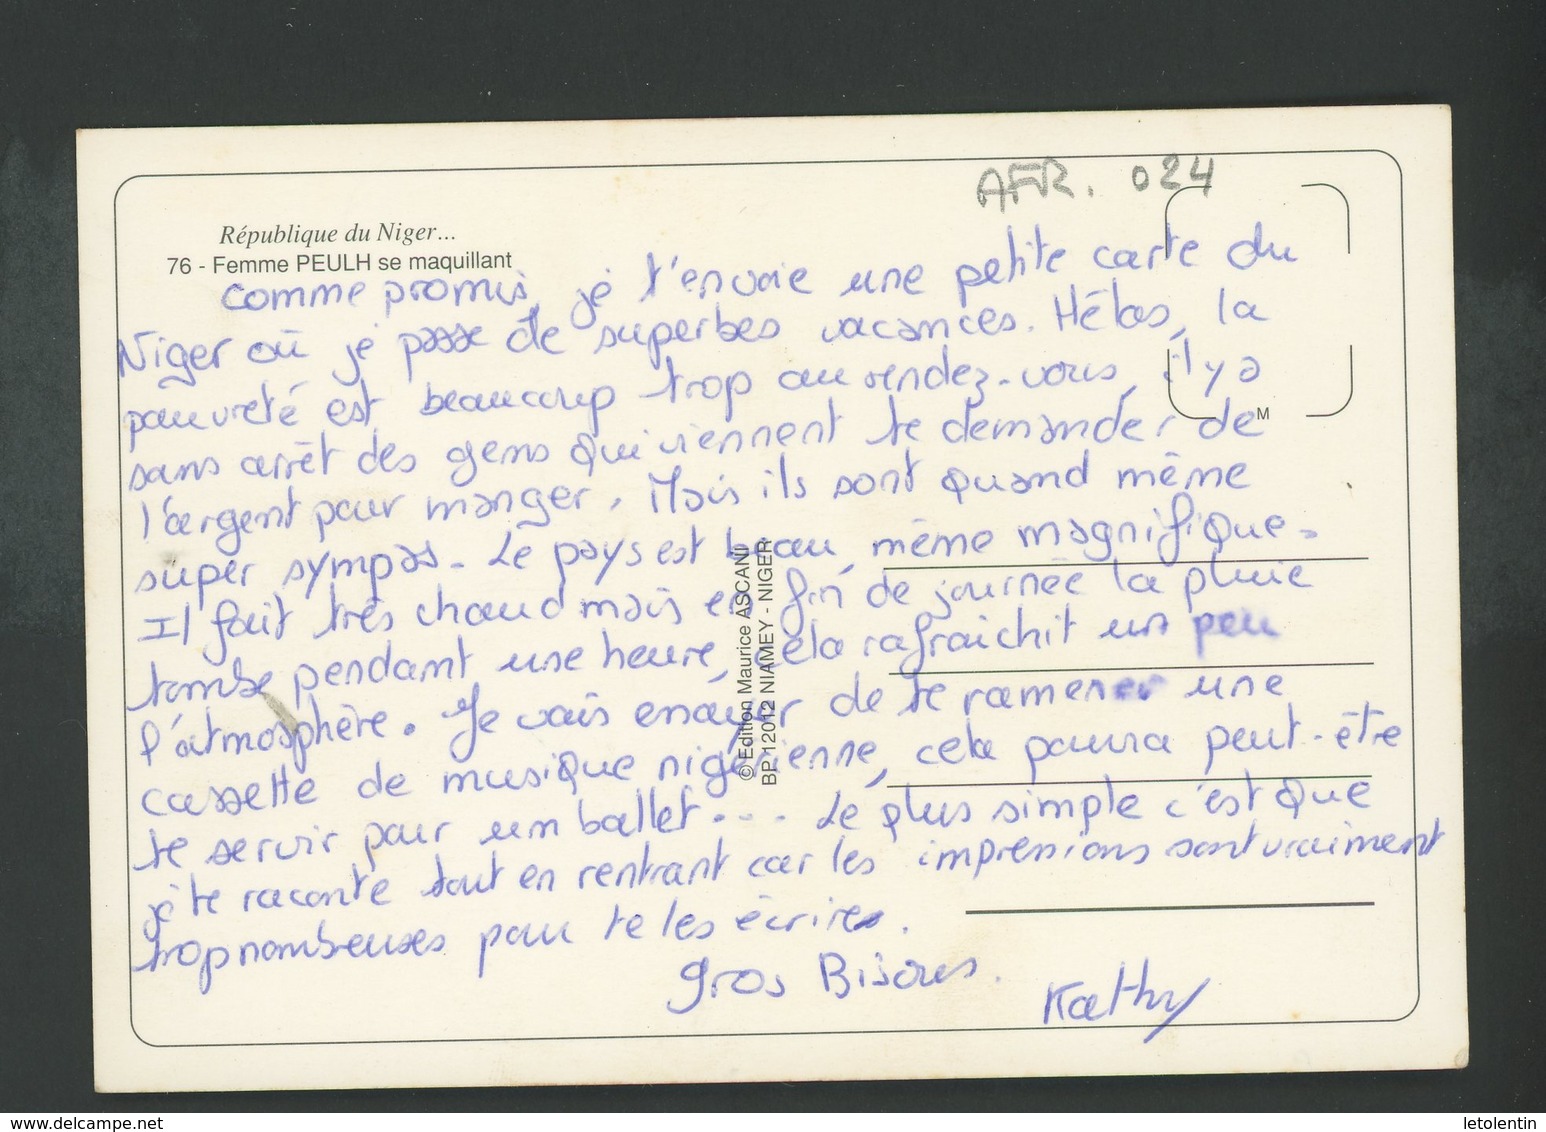 AFR. 024
République du Niger...
76 - Femme PEULH se maquillant
Comme promis, je t'envoie une petite carte du
Niger où je passe de superbes vacances. Hélas, la
pauvreté est beaucoup trop au rendez-vous, il y a
sans arrêt des gens qui viennent te demander de
l'argent pour manger. Mais ils sont quand même
super sympas. Le pays est beau, même magnifique.
Il fait très chaud mais en fin de journée la pluie
tombe pendant une heure, cela rafraichit un peu
l'atmosphère. Je vais essayer de te ramener une
cassette de musique nigérienne, cela pourra peut-être
te servir pour un ballet... Le plus simple c'est que
je te raconte tout en rentrant car les impressions sont vraiment
trop nombeuses pour te les écrires.
Gros Bisous.
Kathy
M
© Edition Maurice ASCANI
BP 12012 NIAMEY - NIGER
delcampe.net
letolentin